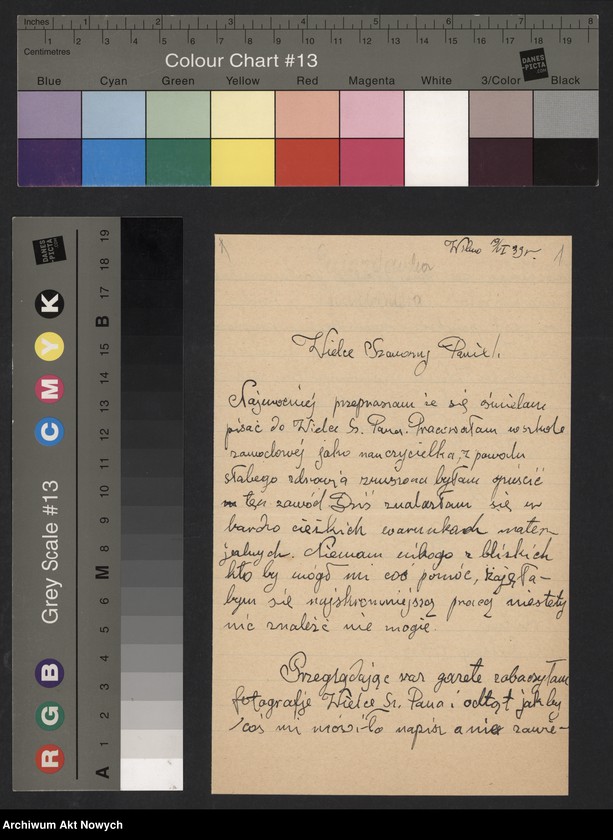 Inches 1 2 3 4 5 6 7 8
Centimetres 1 2 3 4 5 6 7 8 9 10 11 12 13 14 15 16 17 18 19
Colour Chart #13
DANES-PICTA.COM
Blue Cyan Green Yellow Red Magenta White 3/Color Black
Grey Scale #13
DANES-PICTA.COM
R G B C M Y K
A 1 2 3 4 5 6 M 8 9 10 11 12 13 14 15 B 17 18 19
Wilno I 33 r.
1
Wielce Szanowny Panie!
Najmocniej przepraszam że się ośmielam
pisać do Wielce Sz. Pana. Pracowałam w szkole
zawodowej jako nauczycielka, z powodu
słabego zdrowia zmuszona byłam opuścić
ten zawód Dziś znalazłam się w
bardzo ciężkich warunkach mater-
jalnych. Niemam nikogo z bliskich
kto by mógł mi coś pomóc, zajęła-
bym się najskromniejszą pracą niestety
nic znaleźć nie mogię.
Przeglądając raz gazetę zobaczyłam
fotografje Wielce Sz. Pana i odtąd jakby
coś mi mówiło napisz a nie zawie-
Archiwum Akt Nowych